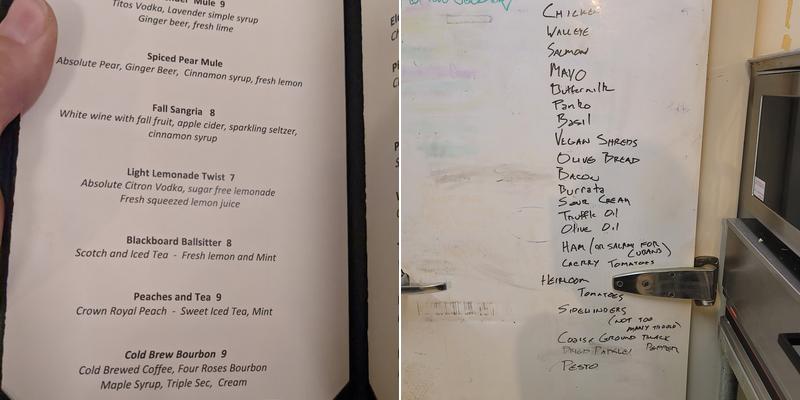 Mule 9
Titos Vodka, Lavender simple syrup
Ginger beer, fresh lime
Spiced Pear Mule
Absolute Pear, Ginger Beer, Cinnamon syrup, fresh lemon
Fall Sangria 8
White wine with fall fruit, apple cider, sparkling seltzer,
cinnamon syrup
Light Lemonade Twist 7
Absolute Citron Vodka, sugar free lemonade
Fresh squeezed lemon juice
Blackboard Ballsitter 8
Scotch and Iced Tea - Fresh lemon and Mint
Peaches and Tea 9
Crown Royal Peach - Sweet Iced Tea, Mint
Cold Brew Bourbon 9
Cold Brewed Coffee, Four Roses Bourbon
Maple Syrup, Triple Sec, Cream
CHICKEN
WALLEYE
SALMON
MAYO
Buttermilk
Panko
Basil
VEGAN SHREDS
OLIVE BREAD
BACON
Burrata
SOUR CREAM
Truffle Oil
Olive Oil
HAM (OR SALAMI FOR
CUBANS)
CHERRY TOMATOES
HEIRLOOM
TOMATOES
SIDEWINDERS
(NOT TOO
MANY THOUGH)
GROUND BLACK
PEPPER
DRIED PARSLEY
PESTO